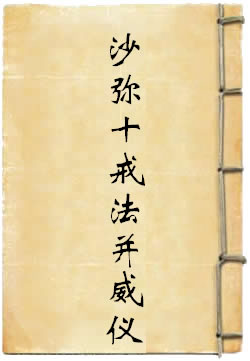 沙弥十戒法并威仪